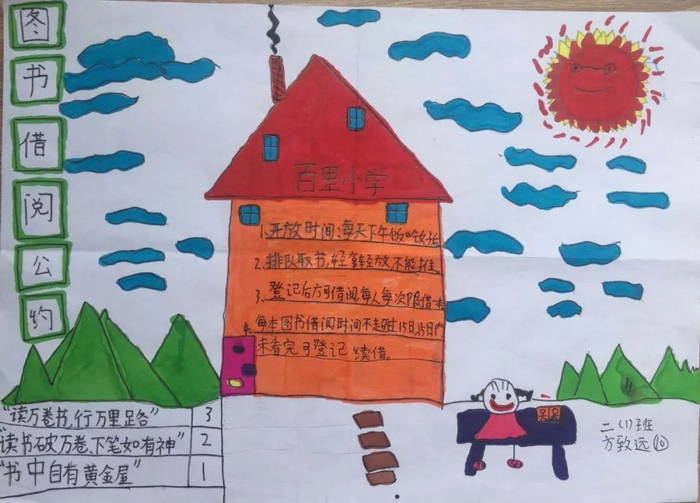 图书借阅公约
百里小学
1.开放时间:每天下午
2.排队取书,轻拿轻放,不能
3. 登记后方可借阅,每人每次限借
4.每本图书借阅时间不超过15日,15日内
未看完可登记续借。
"读万卷书,行万里路" 3
"读书破万卷,下笔如有神" 2
"书中自有黄金屋" 1
二(1)班
方致远